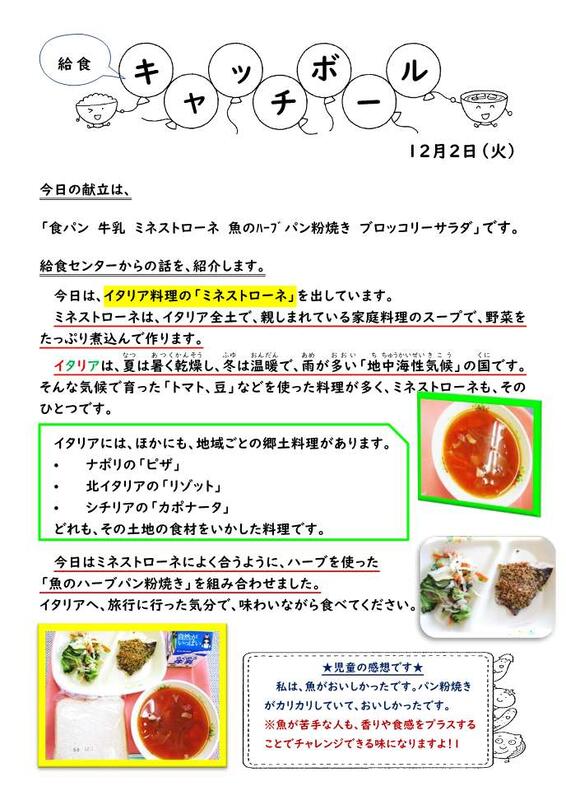 給食
キャッチボール
12月2日(火)
今日の献立は、
「食パン 牛乳 ミネストローネ 魚のハーブパン粉焼き ブロッコリーサラダ」です。
給食センターからの話を、紹介します。
今日は、イタリア料理の「ミネストローネ」を出しています。
ミネストローネは、イタリア全土で、親しまれている家庭料理のスープで、野菜を
たっぷり煮込んで作ります。
なつ あつくかんそう ふゆ おんだん あめ おおい ちちゅうかいせいきこう くに
イタリアは、夏は暑く乾燥し、冬は温暖で、雨が多い「地中海性気候」の国です。
そんな気候で育った「トマト、豆」などを使った料理が多く、ミネストローネも、その
ひとつです。
イタリアには、ほかにも、地域ごとの郷土料理があります。
• ナポリの「ピザ」
• 北イタリアの「リゾット」
• シチリアの「カポナータ」
どれも、その土地の食材をいかした料理です。
今日はミネストローネによく合うように、ハーブを使った
「魚のハーブパン粉焼き」を組み合わせました。
イタリアへ、旅行に行った気分で、味わいながら食べてください。
自然が
いっぱい
★児童の感想です★
私は、魚がおいしかったです。パン粉焼き
がカリカリしていて、おいしかったです。
※魚が苦手な人も、香りや食感をプラスする
ことでチャレンジできる味になりますよ!!